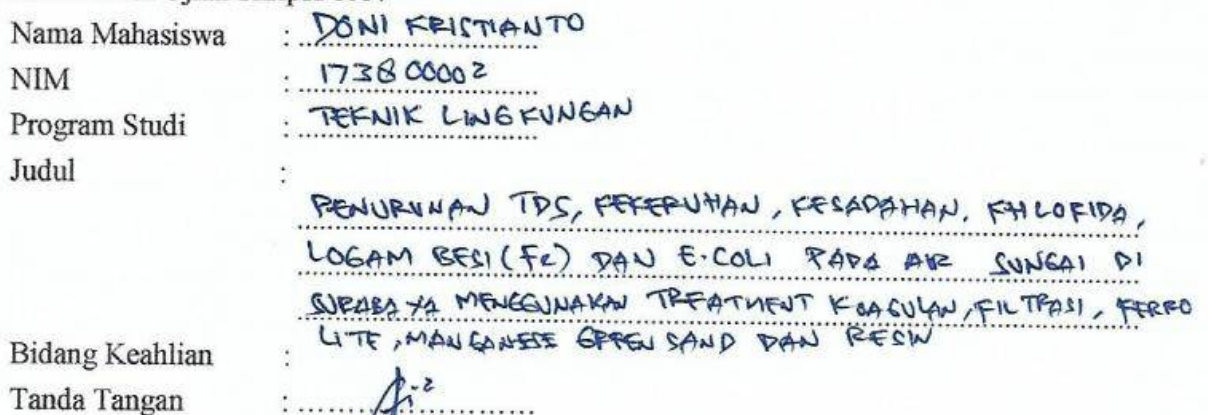 Nama Mahasiswa : DONI KRISTIANTO
NIM : 173800002
Program Studi : TEKNIK LINGKUNGAN
Judul :
PENURUNAN TDS, KEKERUHAN, KESADAHAN, KHLORIDA,
LOGAM BESI (Fe) DAN E.COLI PADA AIR SUNGAI DI
SURABAYA MENGGUNAKAN TREATMENT KOAGULAN, FILTRASI, FERRO
LITE, MANGANESE GREEN SAND DAN RESIN
Bidang Keahlian :
Tanda Tangan :